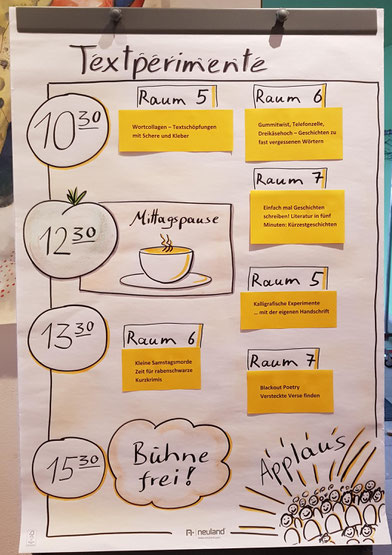 Textperimente
10 30
Raum 5
Wortcollagen – Textschöpfungen
mit Schere und Kleber
Raum 6
Gummitwist, Telefonzelle,
Dreikäsehoch – Geschichten zu
fast vergessenen Wörtern
Raum 7
Einfach mal Geschichten
schreiben! Literatur in fünf
Minuten: Kürzestgeschichten
12 30
Mittagspause
13 30
Raum 6
Kleine Samstagsmorde
Zeit für rabenschwarze
Kurzkrimis
Raum 5
Kalligrafische Experimente
... mit der eigenen Handschrift
Raum 7
Blackout Poetry
Versteckte Verse finden
15 30
Bühne
frei!
Applaus
neuland